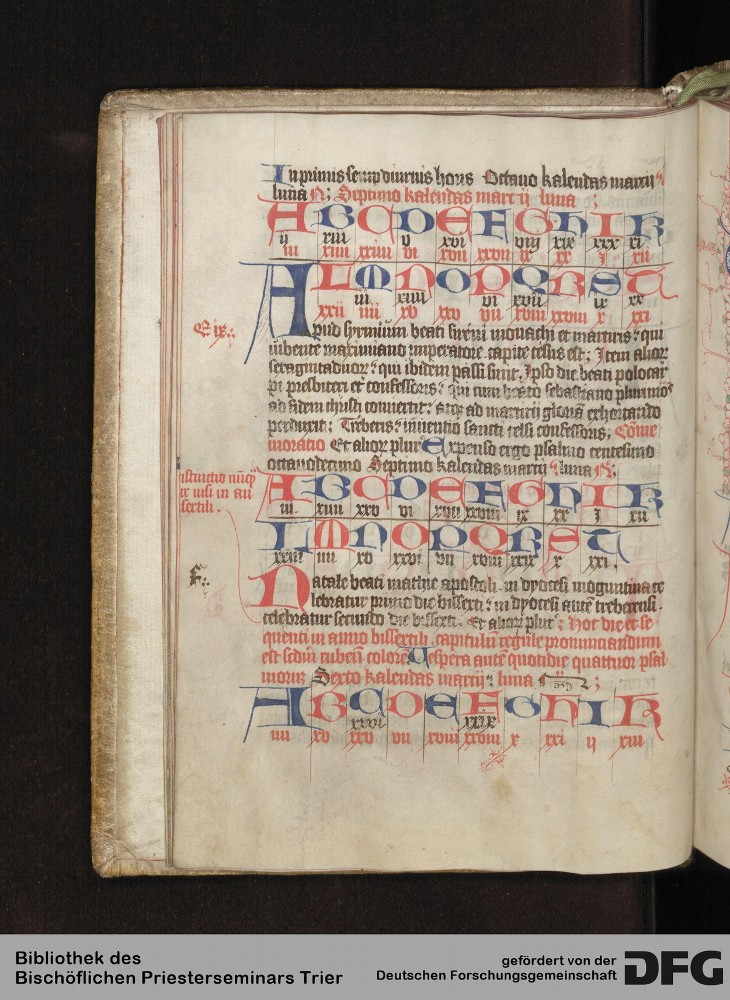 In primis semp diurnis horis Octavo kalendas marcii
luna N; Septimo kalendas marcii luna ;
A B C D E F G H I K
ii xiii v xvi viii xix xxx xi
iii xiiii xxiiii vi xvii xxvii ix xx i xii
L M N O P Q R S T
iii xiiii vi xvii ix xx
xxii iiii xv xxv vii xviii xxviii x xxi
E ix.
Apud syrmium beati sireni monachi et martiris qui
iubente maximiano imperatore capite cesus est; Item alior
sexagintaduor qui ibidem passi sunt. Ipso die beati policar
pi presbiteri et confessoris qui cum beato sebastiano plurimos
ad fidem christi convertit; atq ad martirii gloriam exhortando
perduxit; Treberis inventio sancti celsi confessoris; Come
moratio Et alior plur Expenso ergo psalmo centesimo
octavodecimo Septimo kalendas marcii luna N;
A B C D E F G H I K
iii xiiii xxv vi xvii xxviii ix xx i xii
L M N O P Q R S T
xxiii iiii xv xxvi vii xviii xxix x xxi
F
Natale beati mathie apostoli in dyocesi moguntina ce
lebratur primo die bissexti in dyocesi aute treberensi
celebratur secundo die bissexti. Et alior plur Hoc die et se
quenti in anno bissextili capitulum regule pronunciandum
est sedm rubeum colore Vespera aute quotidie quattuor psal
morum Sexto kalendas marcii luna ;
A B C D E F G H I K
xxvi xxix
iiii xv xxv vii xviii xxviii x xxi ii xiii
Bibliothek des
Bischöflichen Priesterseminars Trier
gefördert von der
Deutschen Forschungsgemeinschaft
DFG